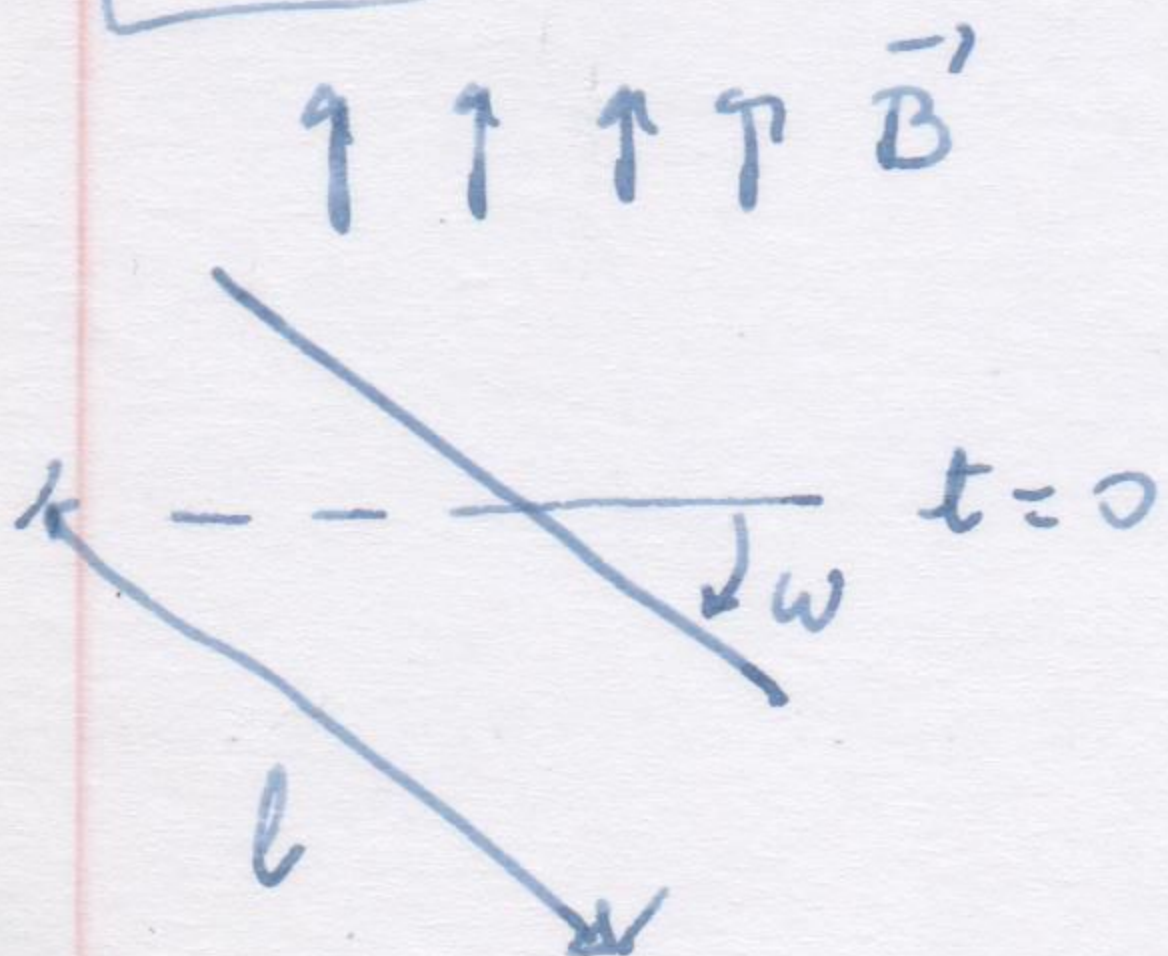 B⃗
t = 0
ω
l